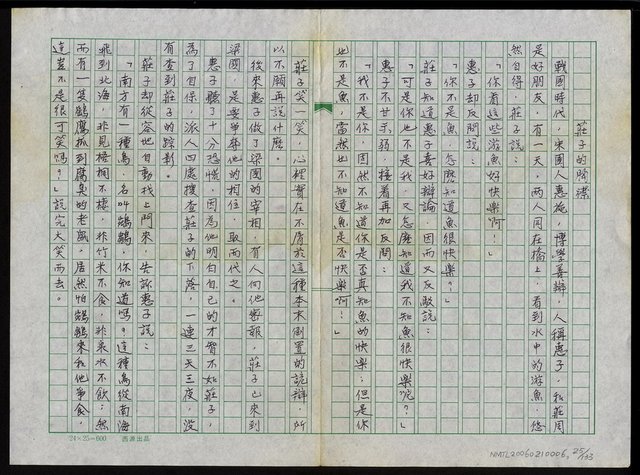 莊子的瞬滐
戰國時代，宋國人惠施，博學善辯，人稱惠子，和莊周
是好朋友，有一天，兩人同在橋上，看到水中的游魚，悠
然自得，莊子說：
「你看這些游魚好快樂啊！」
惠子却反問說：
「你不是魚，怎麼知道魚很快樂？」
莊子知道惠子喜好辯論，因而又反駁說：
「可是你也不是我，又怎麼知道我不知魚很快樂呢？」
惠子不甘示弱，接着再加反問：
「我不是你，固然不知道你是否真知魚的快樂；但是你
也不是魚，當然也不知道魚是否快樂啊！」
莊子笑一笑，心裡實在不屑於這種本末倒置的詭辯，所
以不願再說什麼。
後來惠子做了梁國的宰相，有人向他密報，莊子已來到
梁國，是要爭奪他的相位，取而代之。
惠子聽了十分恐慌，因為他明白自己的才智不如莊子，
為了自保，派人四處搜查莊子的下落，一連三天三夜，沒
有查到莊子的踪影。
莊子却從容地自動找上門來，告訴惠子說：
「南方有一種鳥，名叫鵷鶵，你知道嗎？這種鳥從南海
飛到北海，非見梧桐不棲，非竹米不食，非泉水不飲；然
而有一隻鷂鷹抓到腐臭的老鼠，居然怕鵷鶵來和他爭食，
這豈不是很可笑嗎？」說完大笑而去。
24×25=600 西源出品
NMTL20060210006, 25/133